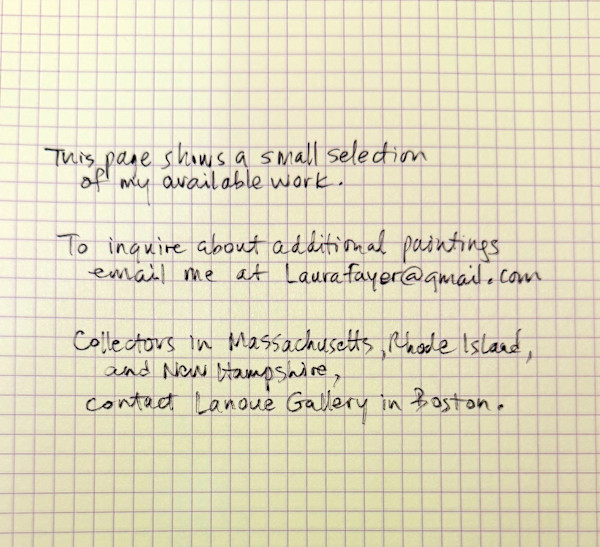 This page shows a small selection
of my available work.
To inquire about additional paintings
email me at Laurafayer@gmail.com
Collectors in Massachusetts, Rhode Island,
and New Hampshire,
contact Lanoue Gallery in Boston.